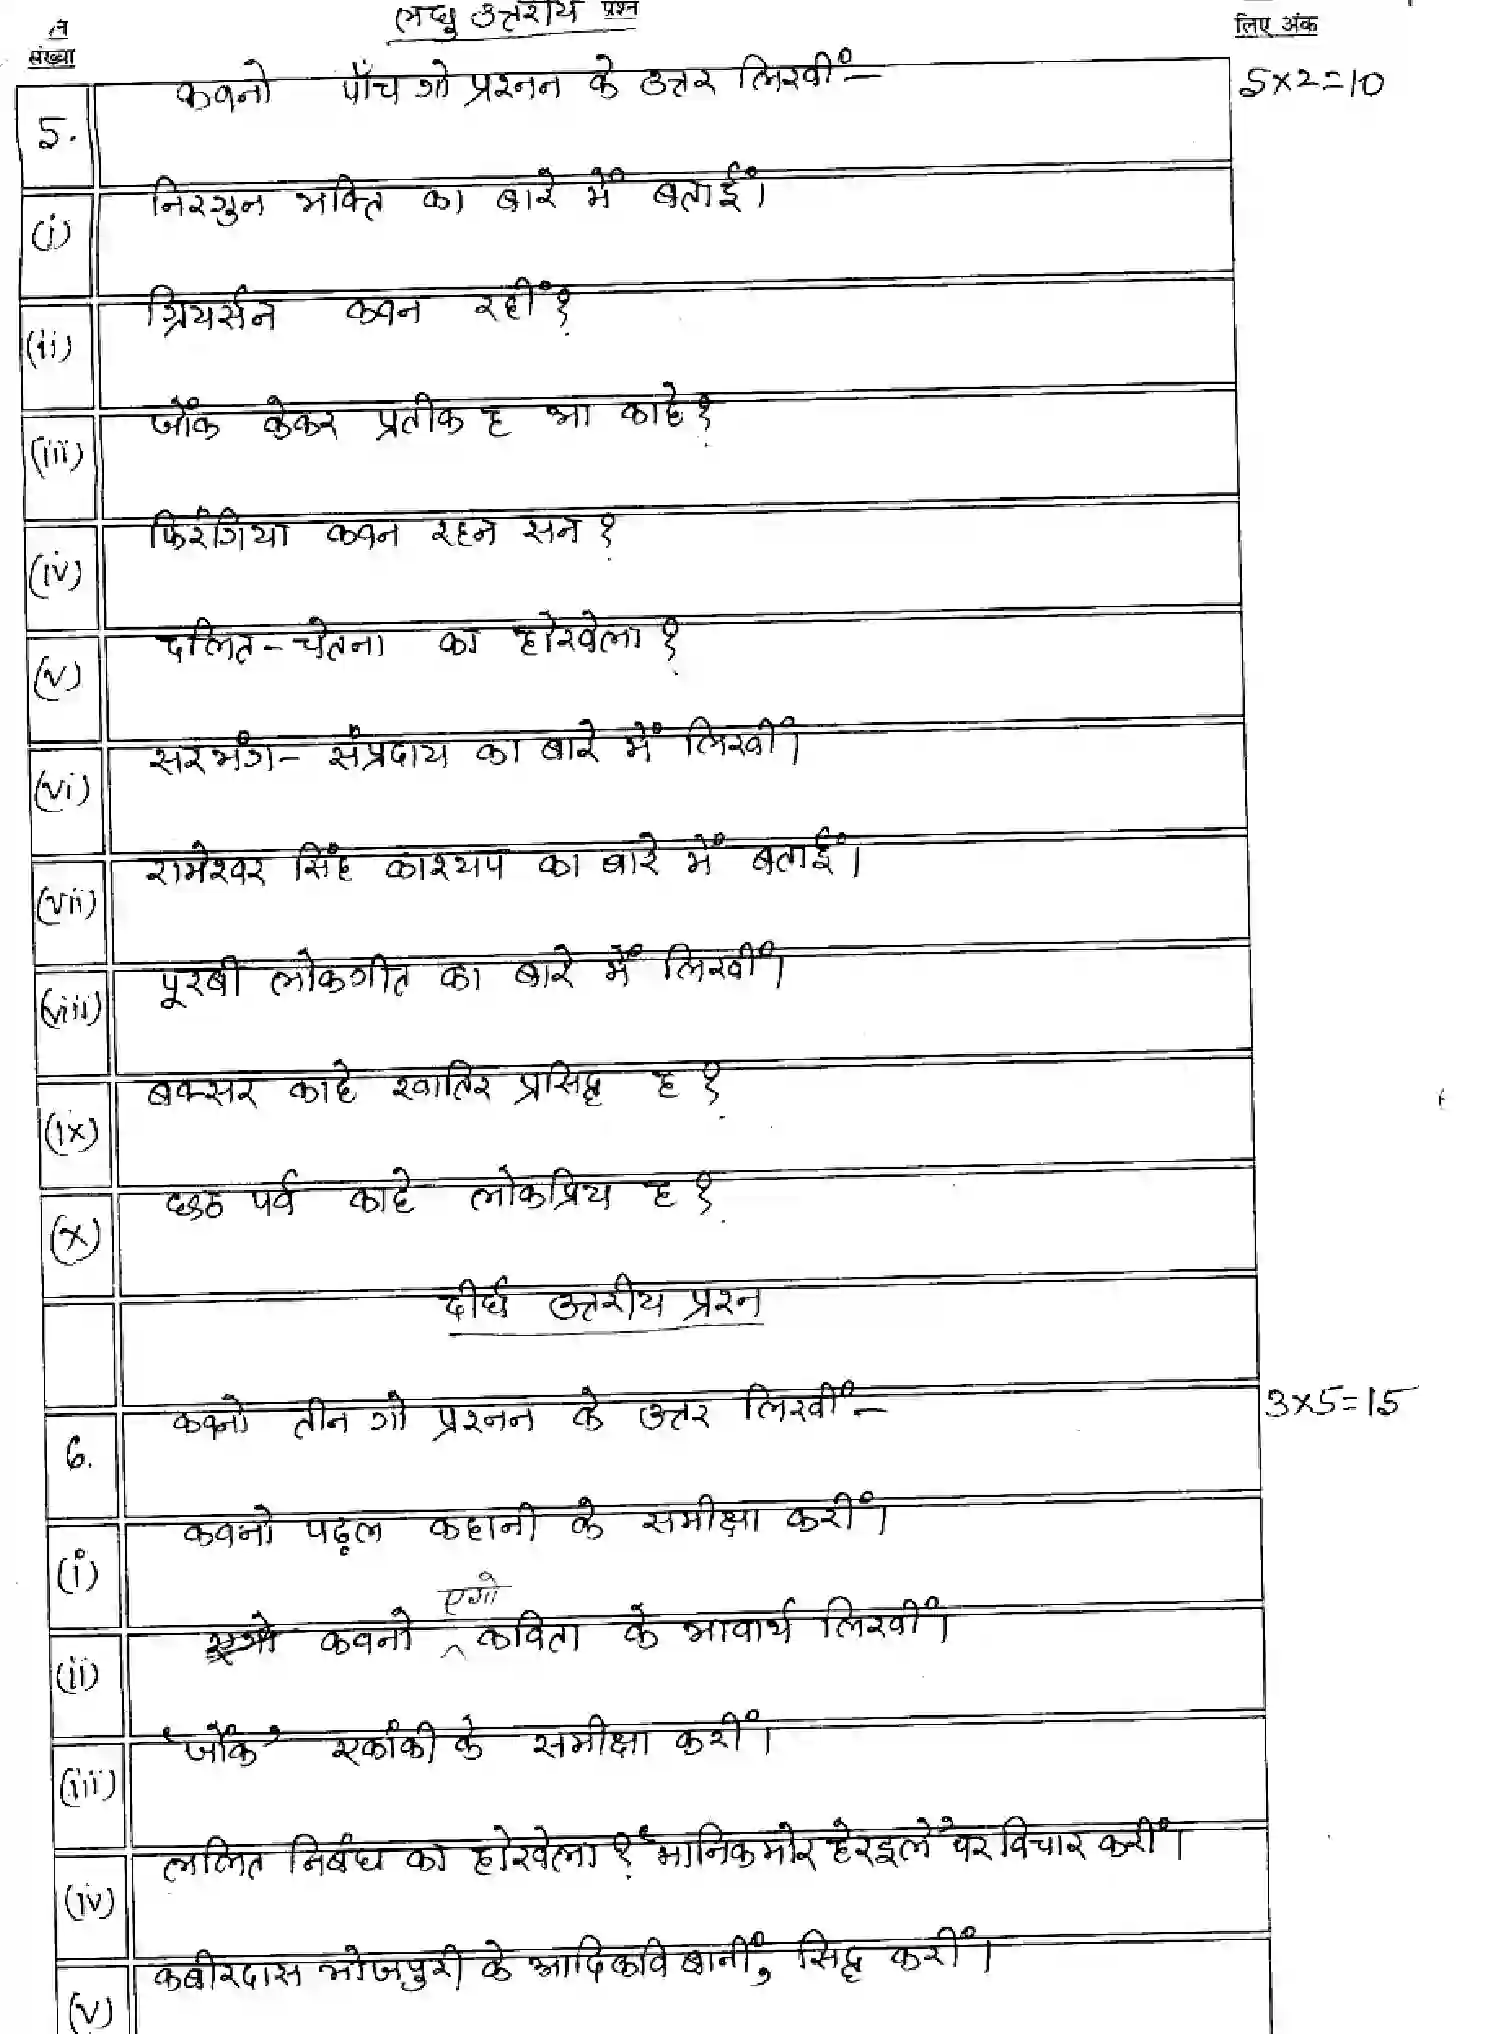 लघु उत्तरीय प्रश्न
संख्या
लिए अंक
5. कवनो पाँच गो प्रश्नन के उत्तर लिखीं- 5×2=10
(i) निरगुन भक्ति का बारे में बताईं।
(ii) ग्रियर्सन कवन रहीं?
(iii) जोंक केकर प्रतीक ह आ काहे?
(iv) फिरंगिया कवन रहन सन?
(v) दलित-चेतना का होखेला?
(vi) सरभंग- संप्रदाय का बारे में लिखीं।
(vii) रामेश्वर सिंह काश्यप का बारे में बताईं।
(viii) पूरबी लोकगीत का बारे में लिखीं।
(ix) बक्सर काहे खातिर प्रसिद्ध ह?
(x) छठ पर्व काहे लोकप्रिय ह?
दीर्घ उत्तरीय प्रश्न
6. कवनो तीन गो प्रश्नन के उत्तर लिखीं- 3×5=15
(i) कवनो पढ़ल कहानी के समीक्षा करीं।
(ii) कवनो एगो कविता के भावार्थ लिखीं।
(iii) 'जोंक' एकांकी के समीक्षा करीं।
(iv) ललित निबंध का होखेला? 'मानिक मोर हेरइले' पर विचार करीं।
(v) कबीरदास भोजपुरी के आदिकवि बानीं, सिद्ध करीं।